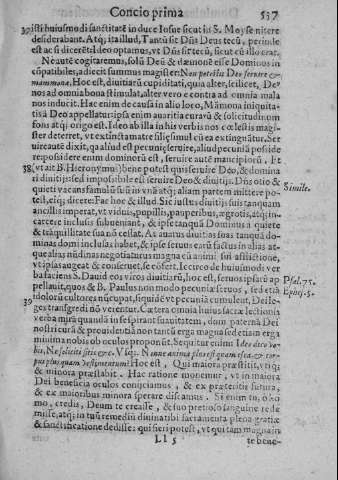 Concio prima 537
37 isti huiusmodi sanctitatē in duce Iosue sicut in S. Moyse nitere
desiderabant. Atq; ita illud, Tantū sit Dñs Deus tecū, perinde
est ac si dicerēt: Ideo optamus, vt Dñs sit tecū, sicut cū illo erat.
Ne autē cogitaremus, solū Deū & dæmonē esse Dominos in
cōpatibiles, adiecit summus magister: Non potestis Deo seruire &
mammonæ. Hoc est, diuitiarū cupiditati, quia alter, scilicet, De⁹
nos ad omnia bona stimulat, alter vero e contra ad omnia mala
nos inducit. Hac enim de causa in alio loco, Māmona iniquita-
tis à Deo appellatur: ipsa enim auaritia curarū & solicitudinum
fons atq; origo est. Ideo ab illa in his verbis nos cœlestis magi-
ster deterret, vt extincta matre filię simul cū ea extinguātur. Ser
uire autē dixit, qa aliud est pecunię seruire, aliud pecuniā posside
re: possidere enim dominorū est, seruire autē mancipiorū. Et
38 (vt ait B. Hieronymus) bene potest quis seruire Deo, & domina
ri diuitijs: sed impossibile est seruire Deo & diuitijs. Dñs otio &
quieti vacans famulū suū in vnā atq; aliam partem mittere po- Simile.
test, eiq; dicere: Fac hoc & illud. Sic iustus diuitijs suis tanquam
ancillis imperat, vt viduis, pupillis, pauperibus, ægrotis, atq; in-
carcere inclusis subueniant, & ipse tanquā Dominus à quiete
& trāquillitate sua nō cessat. At auarus diuitias suas tanquā do-
minas domi inclusas habet, & ipse seruus earū factus in alias at-
que alias nūdinas negotiaturus magna cū animi sui afflictione,
vt ipsas augeat & conseruet, se cōfert. Iccirco de huiusmodi ver
ba faciens S. Dauid eos viros diuitiarū, hoc est, seruos ipsarū ap Psal. 75.
pellauit, quos & B. Paulus non modo pecuniæ seruos, sed etiā Ephes. 5.
39 idolorū cultores nūcupat, siquidē vt pecuniā cumulent, Dei le-
ges transgredi nō verentur. Cætera omnia huius sacræ lectionis
verba mirā quandā in se spirant suauitatem, dum paterna Dei
nostri curā & prouidentiā non tantū erga magna sed etiam erga
minima nobis ob oculos proponūt. Sequitur enim: Ideo dico vo-
bis, Ne soliciti sitis &c. Vsq;. Nonne anima plus est quam esca & cor-
pus plus quam vestimentum? Hoc est, Qui maiora præstitit, vtiq;
& minora præstabit. Hac ratione monemur, vt in maiora
Dei beneficia oculos conijciamus, & ex præteritis futura,
& ex maioribus minora sperare discamus. Si enim tu, ô ho
mo, credis, Deum te creasse, & suo pretioso sanguine rede
misse, atq; in tuū remediū diuina tibi sacramenta plena gratiæ
& sanctificatione dedisse: qui fieri potest, vt qui tam magna in
Ll 5 te bene-